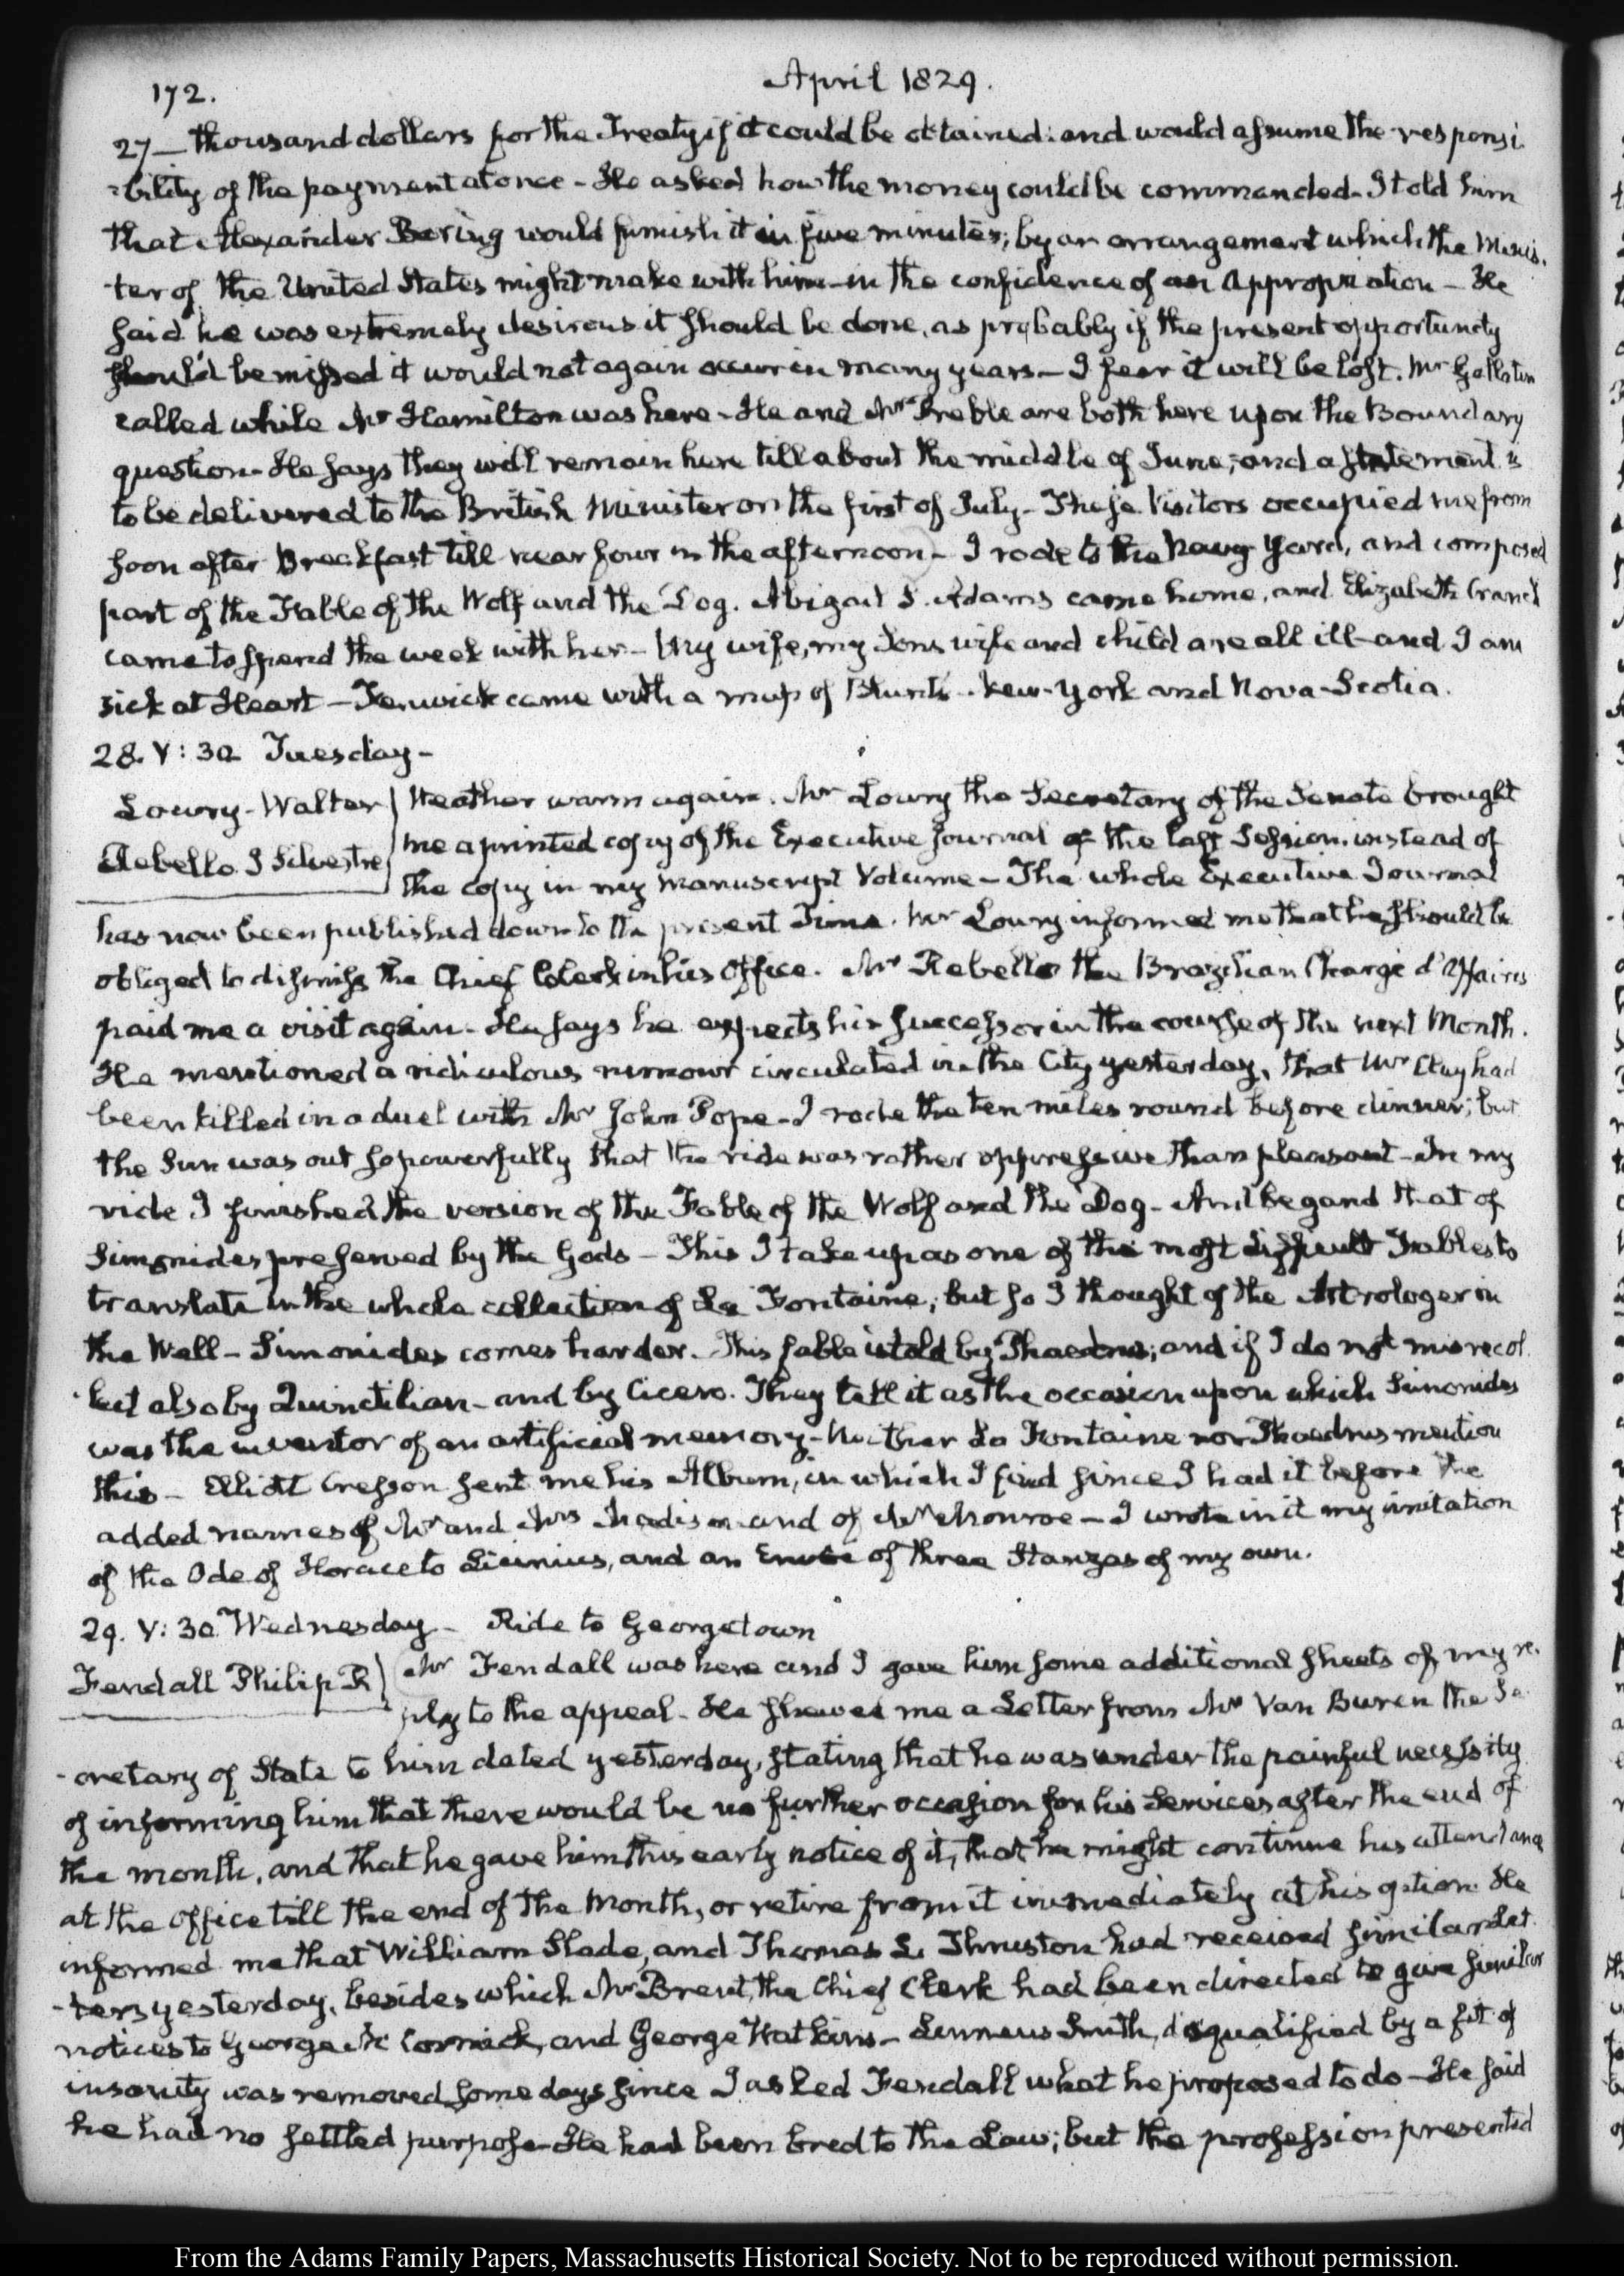 172.
April 1829.
27 — thousand dollars for the Treaty if it could be obtained: and would assume the responsi
-bility of the payment at once - He asked how the money could be commanded - I told him
that Alexander Baring would furnish it in five minutes; by an arrangement which the Minis-
-ter of the United States might make with him - in the confidence of an Appropriation - He
said he was extremely desirous it should be done, as probably if the present opportunity
should be missed it would not again occur in many years - I fear it will be lost. Mr Gallatin
called while Mr Hamilton was here - He and Mr Preble are both here upon the Boundary
question - He says they will remain here till about the middle of June; and a statement is
to be delivered to the British Minister on the first of July - These Visitors occupied me from
soon after Breakfast till near four in the afternoon - I rode to the Navy Yard, and composed
part of the Fable of the Wolf and the Dog. Abigail S. Adams came home, and Elizabeth Cranch
came to spend the week with her - My wife, my Sons wife and child are all ill - and I am
sick at Heart - Fenwick came with a map of Blunts - New-York and Nova-Scotia.
28. V: 30 Tuesday -
Lowry - Walter
Rebello J Silvestre
Weather warm again. Mr Lowry the Secretary of the Senate brought
me a printed copy of the Executive Journal of the last Session. instead of
the copy in my manuscript Volume - The whole Executive Journal
has now been published down to the present Time. Mr Lowry informed me that he should be
obliged to dismiss the Chief Clerk in his Office. Mr Rebello the Brazilian Chargé d'Affaires
paid me a visit again - He says he expects his successor in the course of the next Month.
He mentioned a ridiculous rumour circulated in the City yesterday, that Mr Clay had
been killed in a duel with Mr John Pope - I rode the ten miles round before dinner; but
the Sun was out so powerfully that the ride was rather oppressive than pleasant - In my
ride I finished the version of the Fable of the Wolf and the Dog - And began that of
Simonides preserved by the Gods - This I take up as one of the most difficult Fables to
translate in the whole collection of La Fontaine; but so I thought of the Astrologer in
the Well - Simonides comes harder. This fable is told by Phaedrus; and if I do not misrecol
-lect also by Quinctilian - and by Cicero. They tell it as the occasion upon which Simonides
was the inventor of an artificial memory - Neither La Fontaine nor Phaedrus mention
this - Elliott Cresson sent me his Album, in which I find since I had it before the
added names of Mr and Mrs Madison and of Mr Monroe - I wrote in it my imitation
of the Ode of Horace to Licinius, and an Envoi of three Stanzas of my own.
29. V: 30 Wednesday - Ride to Georgetown
Fendall Philip R
Mr Fendall was here and I gave him some additional sheets of my re-
ply to the appeal - He shewed me a Letter from Mr Van Buren the Se
-cretary of State to him dated yesterday, stating that he was under the painful necessity
of informing him that there would be no further occasion for his Services after the end of
the month, and that he gave him this early notice of it, that he might continue his attendance
at the Office till the end of the Month, or retire from it immediately at his option. He
informed me that William Slade, and Thomas L. Thruston had received similar Let
-ters yesterday, besides which Mr Brent, the Chief Clerk had been directed to give similar
notices to George McCormick, and George Watkins - Linneus Smith, disqualified by a fit of
insanity was removed some days since I asked Fendall what he proposed to do - He said
he had no settled purpose - He had been bred to the Law; but the profession presented
From the Adams Family Papers, Massachusetts Historical Society. Not to be reproduced without permission.